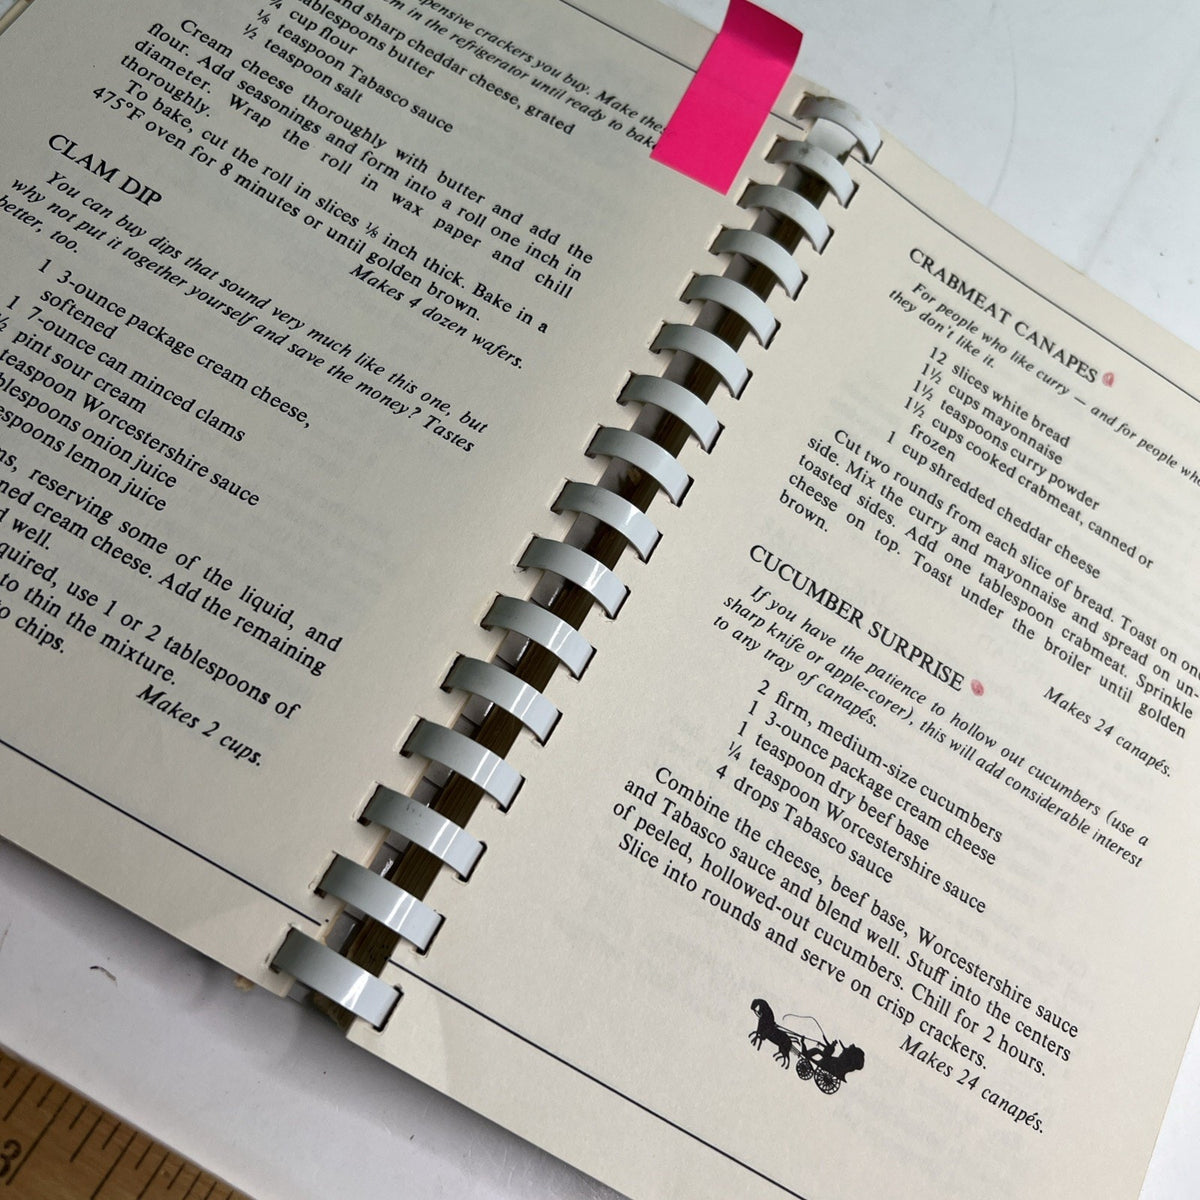 pensive crackers you buy. Make these
in the refrigerator until ready to bake
and sharp cheddar cheese, grated
tablespoons butter
¼ cup flour
⅛ teaspoon Tabasco sauce
½ teaspoon salt
Cream cheese thoroughly with butter and add the
flour. Add seasonings and form into a roll one inch in
diameter. Wrap the roll in wax paper and chill
thoroughly.
To bake, cut the roll in slices ⅛ inch thick. Bake in a
475°F oven for 8 minutes or until golden brown.
Makes 4 dozen wafers.
CLAM DIP
You can buy dips that sound very much like this one, but
why not put it together yourself and save the money? Tastes
better, too.
1 3-ounce package cream cheese,
softened
1 7-ounce can minced clams
½ pint sour cream
teaspoon Worcestershire sauce
onion juice
lemon juice
reserving some of the liquid, and
cream cheese. Add the remaining
well.
use 1 or 2 tablespoons of
to thin the mixture.
chips.
Makes 2 cups.
CRABMEAT CANAPES
For people who like curry — and for people who
they don't like it.
12 slices white bread
1½ cups mayonnaise
1½ teaspoons curry powder
1½ cups cooked crabmeat, canned or
frozen
1 cup shredded cheddar cheese
Cut two rounds from each slice of bread. Toast on one
side. Mix the curry and mayonnaise and spread on un-
toasted sides. Add one tablespoon crabmeat. Sprinkle
cheese on top. Toast under the broiler until golden
brown.
Makes 24 canapés.
CUCUMBER SURPRISE
If you have the patience to hollow out cucumbers (use a
sharp knife or apple-corer), this will add considerable interest
to any tray of canapés.
2 firm, medium-size cucumbers
1 3-ounce package cream cheese
1 teaspoon dry beef base
¼ teaspoon Worcestershire sauce
4 drops Tabasco sauce
Combine the cheese, beef base, Worcestershire sauce
and Tabasco sauce and blend well. Stuff into the centers
of peeled, hollowed-out cucumbers. Chill for 2 hours.
Slice into rounds and serve on crisp crackers.
Makes 24 canapés.
3